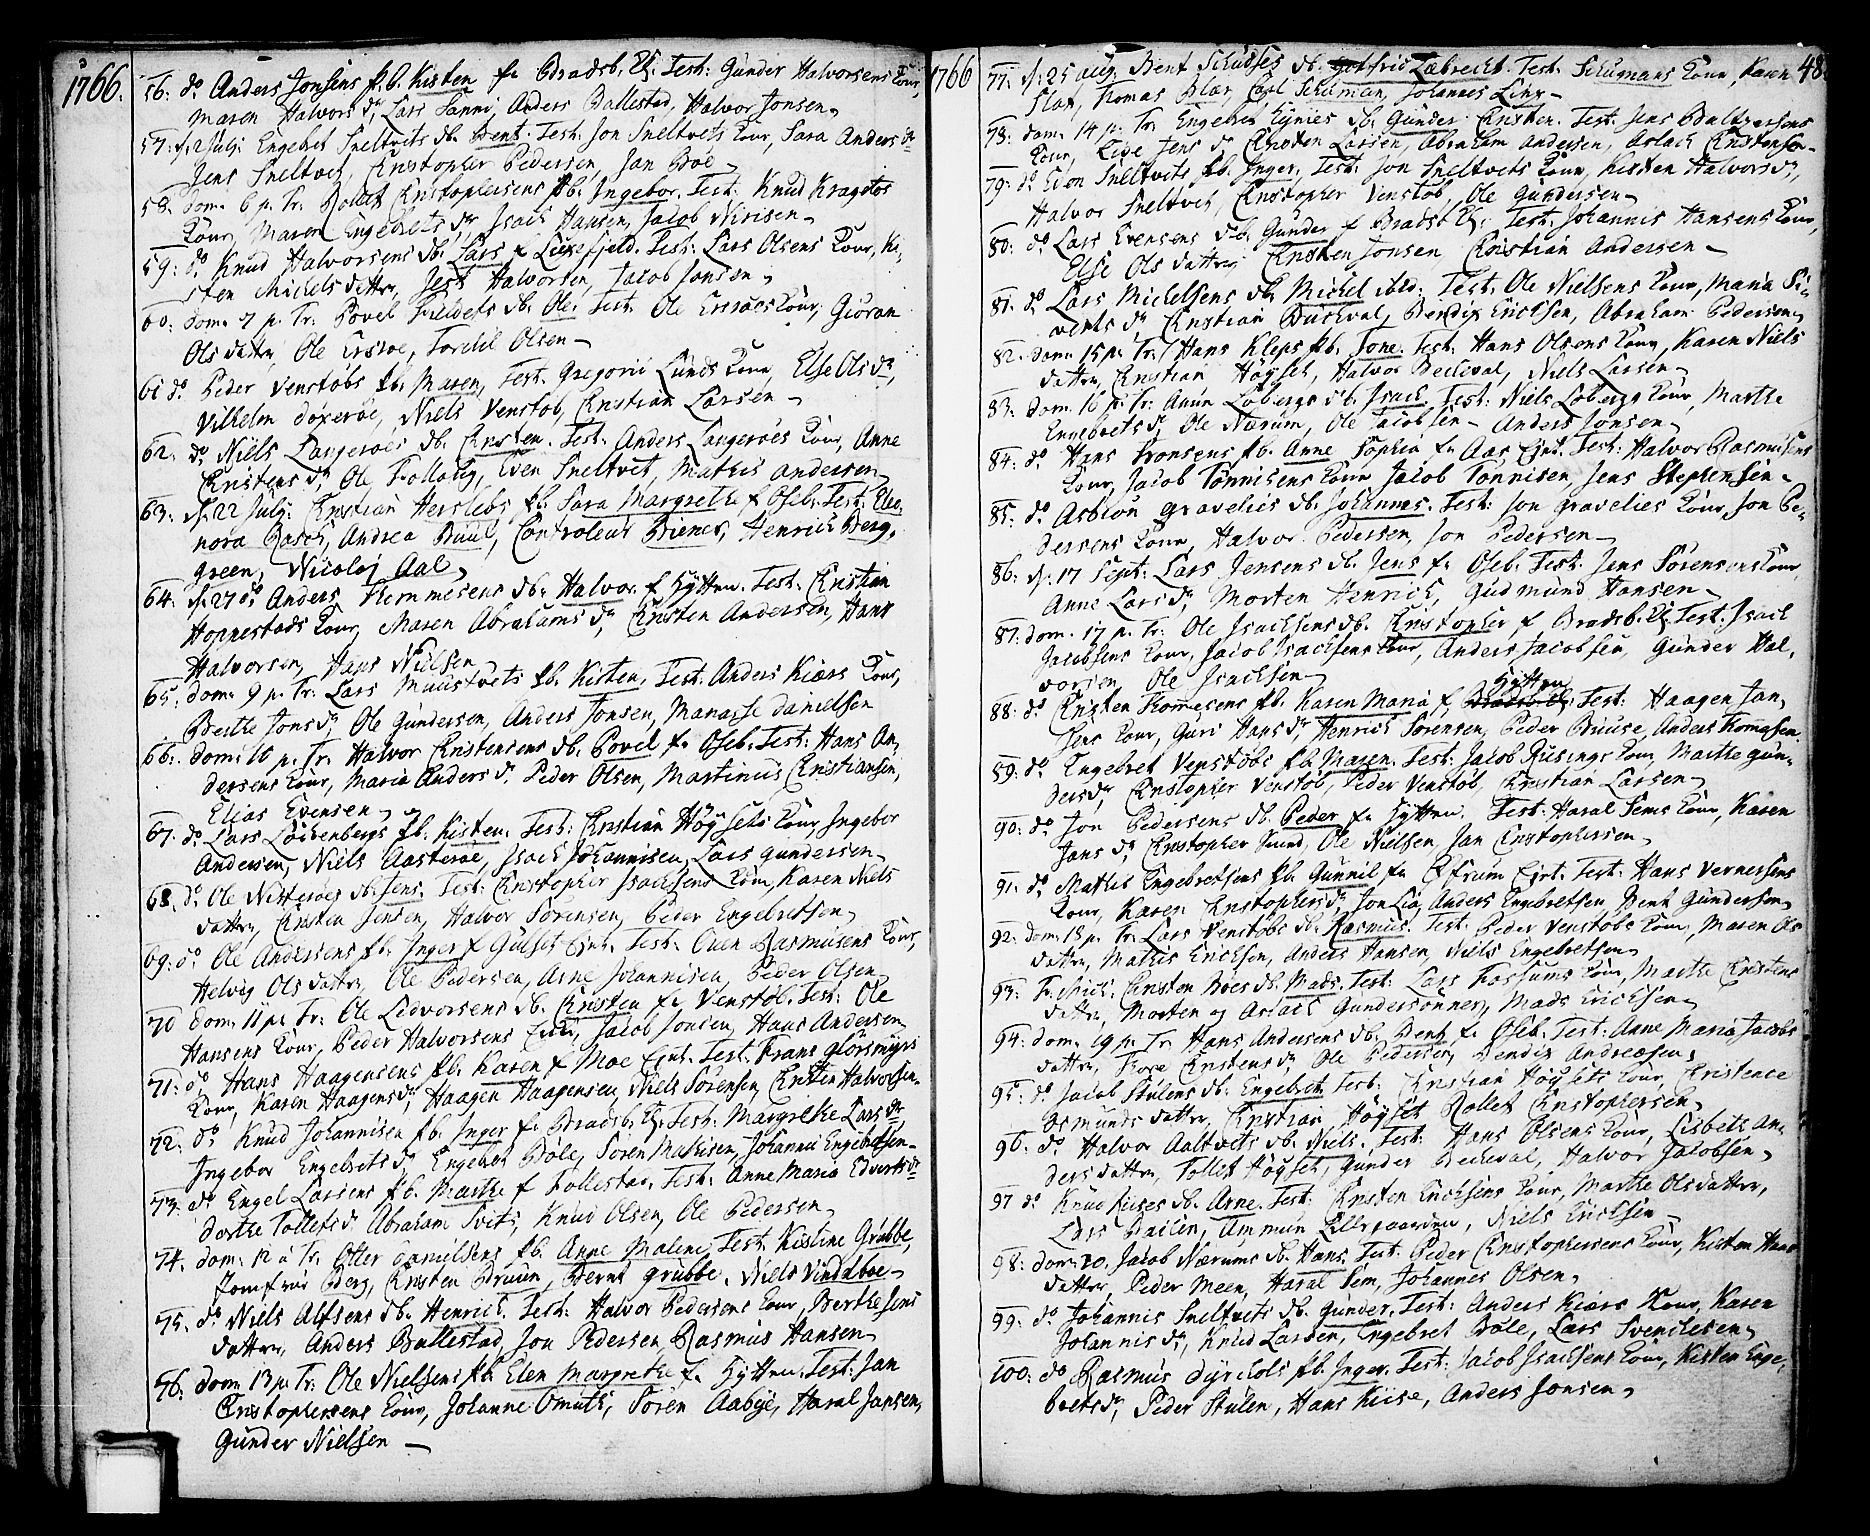 1766.
56. do Anders Jonsens pb. Kisten fr Bradsb. Test: Gunder Halvorsens Konr,
Maren Halvors dr, Lars Sanni, Anders Ballestad, Halvor Jonsen
57. d. 2 July Engebret Sneltvets db. Bent. Test: Jon Sneltvets Konr, Sara Anders dr
Jens Sneltvet, Cristopher Pedersen, Jan Boe
58. dom. 6 p. Tr. Rollet Cristophersens pb. Ingebor. Test: Knud Kragstos
Konr, Maren Engebrets dr, Isach Hansen, Jacob Nirisen
59. do Knud Halvorsens db. Lars f Luxefjeld. Test: Lars Olsens Konr, Ki-
sten Michels datter, Jest Halvorsen, Jacob Jonsen
60. dom. 7 p. Tr. Povel db. Ole. Test: Ole Ersroes Konr, Gioran
Ols datter, Ole Ersroe, Torchil Olsen
61. do Peder Venstøbs pb. Maren, Test. Gregorii Lunds Konr, Else Ols dr,
Vilhelm doxeroe, Niels Venstøb, Cristian Larsen
62. do Niels Langeroes db. Cristen. Test: Anders Langeroes Konr, Anne
Cristens dr, Ole Follaug, Even Sneltvet, Mathis Andersen
63. d. 22 July: Cristian Herslebs pb. Sara Margrethe f Oseb. Test: Ele-
nora Rasch, Andrea Buul, Controleur Briemer, Henrich Berg-
green, Nicolaj Aal
64. d. 27 do Anders Tommesens db. Halvor f Hytten. Test: Cristian
Hoppestads Konr, Maren Abrahams dr, Cristen Andersen, Hans
Halvorsen, Hans Nielsen
65. dom. 9 p. Tr. Lars Muustvets pb. Kisten, Test: Anders Kiærs Konr,
Berthe Jons dr, Ole Gundersen, Anders Jonsen, Manasse danielsen
66. dom. 10 p. Tr. Halvor Cristensens db. Povel fr Oseb. Test: Hans An-
dersens Konr, Maria Anders dr, Peder Olsen, Martinus Cristiansen,
Elias Evensen
67. do Lars Løchenbergs pb. Kisten. Test: Cristian Høysets Konr, Ingebor
Andersen, Niels Aasteroe, Isach Johannisen, Lars Gundersen
68. do Ole Nisteroes db. Jens. Test: Cristopher Isachsens Konr, Karen Niels
datter, Cristen Jensen, Halvor Sørensen, Peder Engebretsen
69. do Ole Andersens pb. Inger f Gulset Ejnt. Test: Ouen Rasmusens Konr,
Helvig Ols datter, Ole Pedersen, Arne Johannisen, Peder Olsen
70 dom. 11 p. Tr: Ole Ledvorsens db. Cristen fr Venstøb. Test: Ole
Hansens Konr, Peder Halvorsens Jacob Jonsen, Hans Andersen
71. do Hans Haagensens pb. Karen f Moe Ejnt. Test: Frans Glørsmyrs
Konr, Karen Haagens dr, Haagen Haagensen, Niels Sørensen, Cristen Halvorsen
72. do Knud Johannisen pb. Inger fr Bradsb. Test: Margrethe Lars dr
Ingebor Engebrets dr, Engebret Bøle, Søren Mathisen, Johannis Engebretsen
73. do Engel Larsens pb. Marthe f Follestad. Test: Anne Maria Edverts dr
Dorthe Tollefs dr, Abraham Svets, Knud Olsen, Ole Pedersen
74. dom. 12 a Tr. Otter danielsens pb. Anne Malene, Test: Kistine Grubbe,
Jomfrue Berg, Cristen Bruun, Bernt Grubbe, Niels Vindalboe
75. do Niels Alfsens db. Henrich. Test: Halvor Pedersens Konr, Berthe Jens
datter, Anders Ballestad, Jon Pedersen, Rasmus Hansen
76. dom. 13 p. Tr: Ole Nielsens pb. Elen Margrethe fr Hytten. Test: Jan
Cristophersens Konr, Johanne Omuth, Søren Aabye, Haral Jansen,
Gunder Nielsen
1766 48.
77. d. 25 aug. Bent Schusses db. Labrecht. Test: Schumans Konr, Karen
Slax, Thomas Blax, Carl Schuman, Johannes Linx
78. dom. 14 p. Tr. Engebret Ejnies db. Gunder Cristen. Test: Jens Baltzersens
Konr, Live Jens dr, Cristen Larsen, Abraham Andersen, Aslach Cristensen
79. do Even Sneltvets pb. Inger, Test: Jon Sneltvets Konr, Kisten Halvors dr,
Halvor Sneltvet, Cristopher Venstøb, Ole Gundersen
80. do Lars Evensens db. Gunder f Bradsb. Test: Johannis Hansens Konr,
Else Ols datter, Cristen Jonsen, Cristian Andersen
81. do Lars Michelsens db. Michel ibid. Test: Ole Nielsens Konr, Maria Si-
verts dr, Cristian Buchval, Bendix Erichsen, Abraham Pedersen
82. dom. 15 p. Tr. Hans Kleps pb. Tone. Test: Hans Olsens Konr, Karen Niels
datter, Cristian Høyset, Halvor Becheval, Niels Larsen
83. dom. 16 p. Tr. Auun Løbergs db. Isach. Test: Niels Løbergs Konr, Marthe
Engebrets dr, Ole Nærum, Ole Jacobsen, Anders Jonsen
84. do Hans Tronsens pb. Anne Sophia fr Aas Ejnt. Test: Halvor Rasmusens
Konr, Jacob Tønnisens Konr, Jacob Tønnisen, Jens Stephensen
85. do Asbiøn Gravelies db. Johannes. Test: Jon Gravelies Konr, Jon Pe-
dersens Konr, Halvor Pedersen, Jon Pedersen
86. d. 17 Sept: Lars Jensens db. Jens fr Oseb. Test: Jens Sørensens Konr,
Anne Lars dr, Morten Henrich, Gudmund Hansen
87. dom. 17 p. Tr: Ole Isachsens db. Cristopher f Bradsb. Test: Isach
Jacobsens Konr, Jacob Isachsens Konr, Anders Jacobsen, Gunder Hal-
vorsen, Ole Isachsen
88. do Cristen Tommesens pb. Karen Maria f Hytten Test: Haagen Jan-
sens Konr, Guri Hans dr, Henrich Sørensen, Peder Bruuse, Anders Tommesen
89. do Engebret Venstøbs pb. Maren. Test: Jacob Risings Konr, Marthe Gun-
ders dr, Cristopher Venstøb, Peder Venstøb, Cristian Larsen
90. do Jon Pedersens db. Peder fr Hytten. Test: Haral Sems Konr, Karen
Jans dr, Cristopher Ole Nielsen, Jan Cristophersen
91. do Mathis Engebretsens pb. Gunnil fr Ejnt. Test: Hans Vernersens
Konr, Karen Cristophers dr, Jon Lia, Anders Engebretsen, Bent Gundersen
92. dom. 18 p. Tr. Lars Venstøbs db. Rasmus. Test: Peder Venstøbs Konr, Maren Ols
datter, Mathis Erichsen, Anders Hansen, Niels Engebretsen
93. F. Mich: Cristen Boes db. Mads. Test: Lars Fossums Konr, Marthe Cristens
datter, Morten og Aslach Gundersønner, Mads Erichsen
94. dom. 19 p. Tr. Hans Andersens db. Bent fr Oseb. Test: Anne Maria Jacobs
datter, Thore Cristens dr, Ole Pedersen, Bendix Andreæsen
95. do Jacob Stulens db. Engebret. Test: Cristian Høysets Konr, Cristence
Osmunds datter, Cristian Høyset, Rollet Cristophersen
96. do Halvor Aaltvets db. Niels. Test: Hans Olsens Konr, Lisbets An-
ders datter, Tollef Høyset, Gunder Becheval, Halvor Jacobsen
97 do Knud Kises db. Arne. Test: Cristen Erichsens Konr, Marthe Ols datter,
Lars Ammun Lillegaarden, Niels Erichsen
98: dom. 20. Jacob Nærums db. Hans. Test: Peder Cristophersens Konr, Kisten Hans
datter, Peder Meen, Haral Sem, Johannes Olsen
99: do Johannis Sneltvets db. Gunder. Test: Anders Kiærs Konr, Karen
Johannis dr, Knud Larsen, Engebret Bøle, Lars Svenchesen
100: do Rasmus Dyrchols pb. Inger. Test: Jacob Isachsens Konr, Kisten Enge-
brets dr, Peder Stulen, Hans Kiise, Anders Jonsen